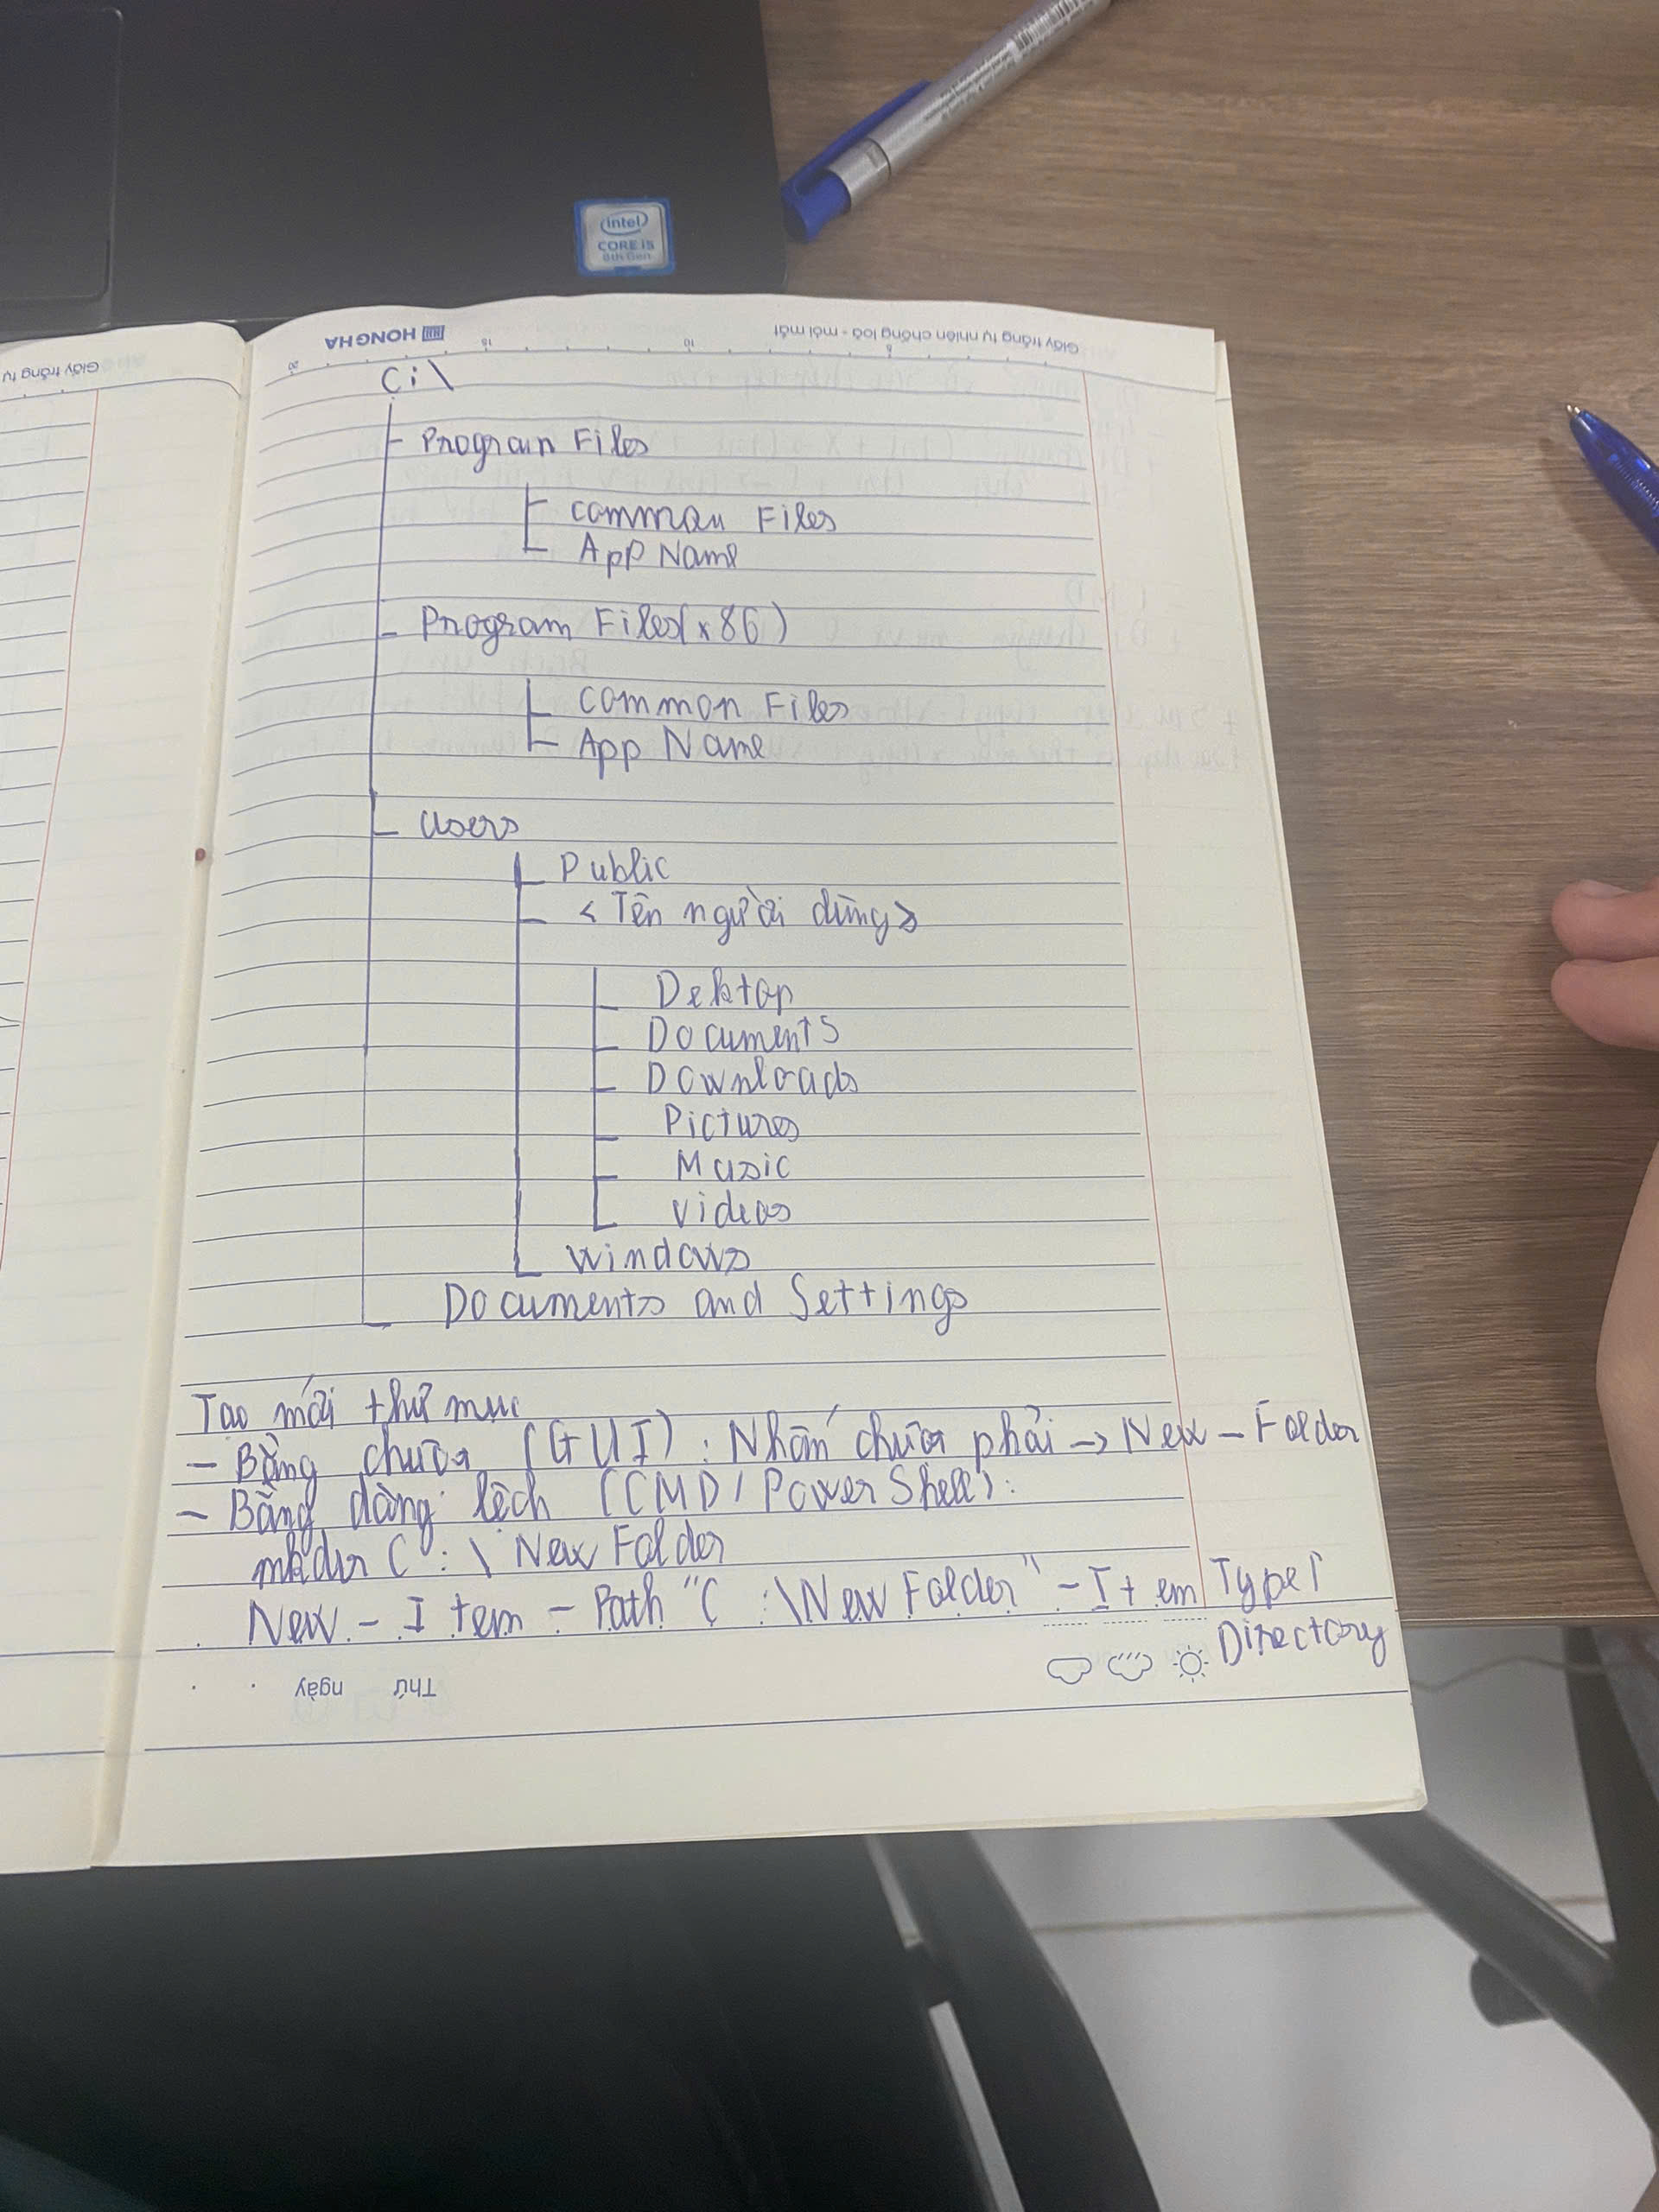 intel
CORE i5
8th Gen
Giấy trắng tự
HONG HA
Giấy trắng tự nhiên chống loá - mỏi mắt
20 15 10 5
C:\
Program Files
Common Files
App Name
Program Files (x86)
Common Files
App Name
Users
Public
<Tên người dùng>
Dektop
Documents
Downloads
Pictures
Music
Videos
Windows
Documents and Settings
Tạo mới thư mục
- Bằng chuột (GUI): Nhấn chuột phải -> New - Folder
- Bằng dòng lệch (CMD / PowerShell):
mkdir C:\New Folder
New - Item - Path "C:\New Folder" - Item Type
Directory
Thứ ngày